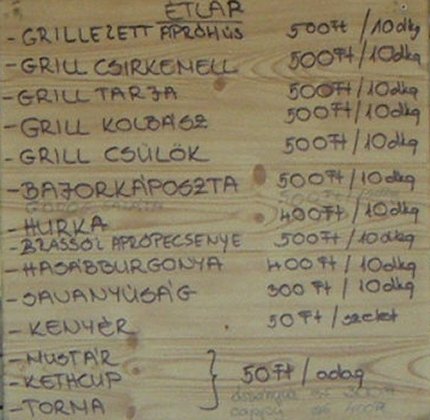 ÉTLAP
- GRILLEZETT APRÓHÚS 500Ft /10dkg
- GRILL CSIRKEMELL 500Ft /10dkg
- GRILL TARJA 500Ft /10dkg
- GRILL KOLBÁSZ 500Ft /10dkg
- GRILL CSÜLÖK 500Ft /10dkg
- BAJORKÁPOSZTA 500Ft /10dkg
- HURKA 400Ft /10dkg
- BRASSÓI APRÓPECSENYE 500Ft /10dkg
- HASÁBBURGONYA 400Ft /10dkg
- SAVANYÚSÁG 300 Ft /10dkg
- KENYÉR 50 Ft / szelet
- MUSTÁR
- KETHCUP 50 Ft / adag
- TORMA